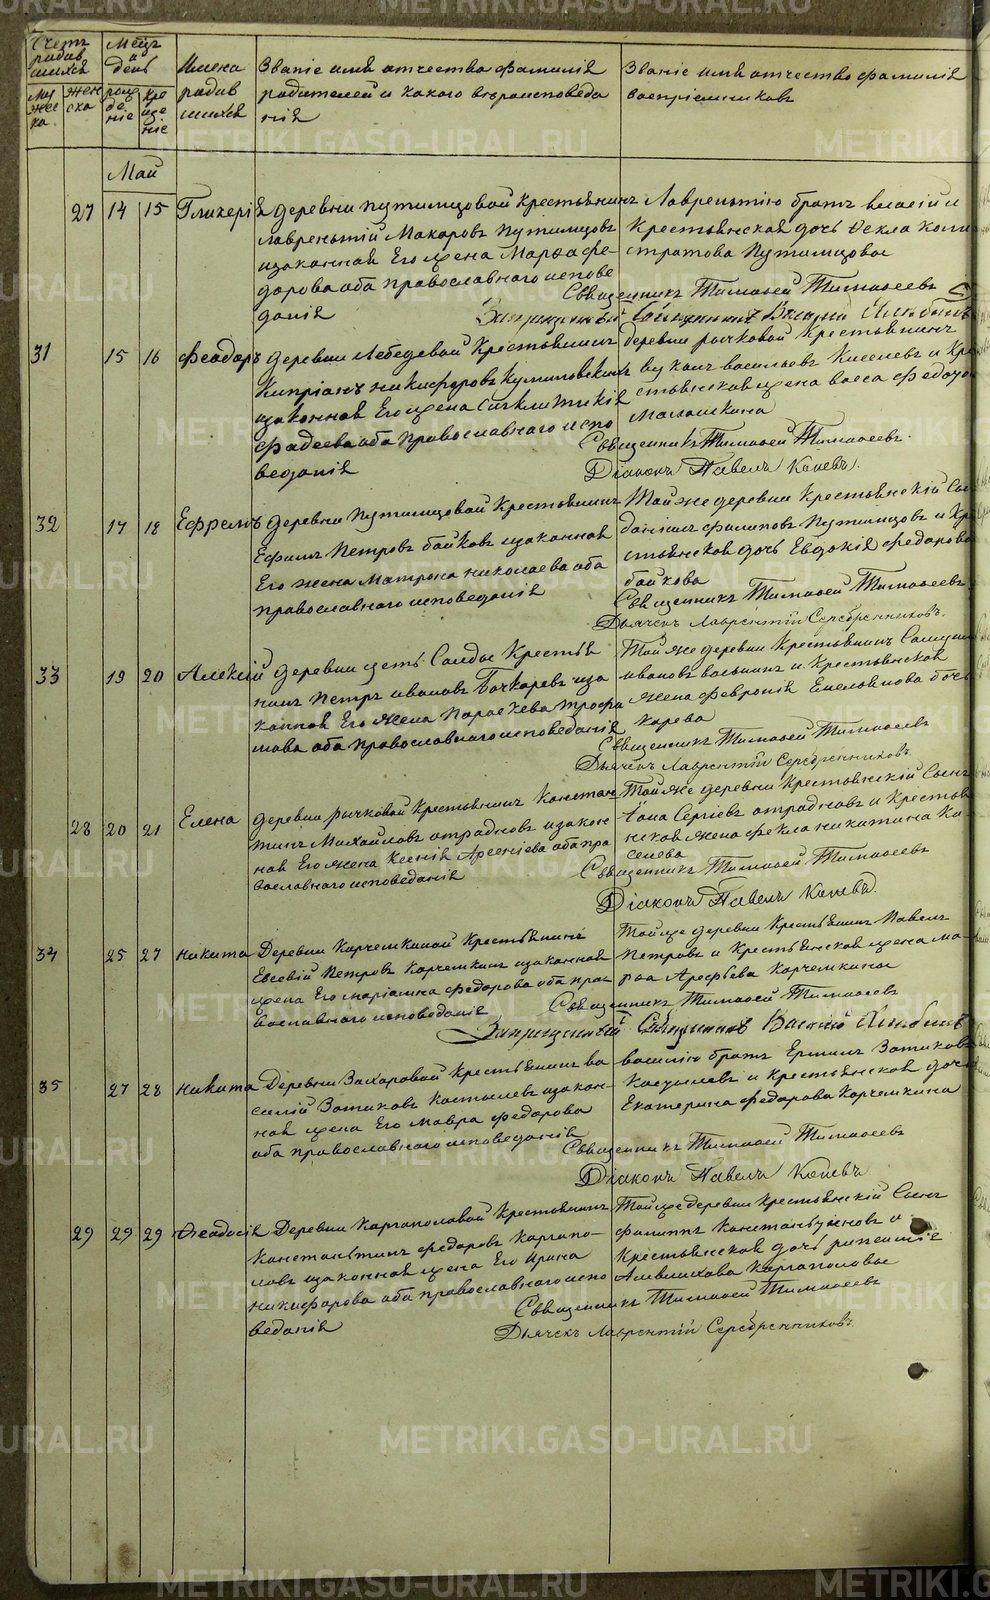 Счетъ родив шихся
Мцъ и день
Имена родив шихся
Званіе имя отчество фамилія родителей и какого вероисповеда нія
Званіе имя отчество фамилія воспріемниковъ
му жес ка
жен ска
рож де ніе
кре ще ніе
Май
27 14 15 Гликерія деревни путимцовой Крестьянинъ
Лаврентій Макаровъ Путимцовъ
изаконная Его жена Марфа фе-
дорова оба православнаго испове
данія
Лаврентію братъ
Крестьянская дочь Фекла
Путимцова
Священникъ Тимофей Тимофеевъ
Запрещенный Священникъ Василій
31 15 16 Феодоръ деревни Лебедевой Крестьянинъ
Кипріанъ никифоровъ
изаконная Его жена Синклитикія
фадеева оба Православнаго испо
веданія
деревни рычковой Крестьянинъ
васильевъ Киселевъ и Кре
стьянская жена васса федото
Малышкина
Священникъ Тимофей Тимофеевъ.
Діаконъ Павелъ Коневъ.
32 17 18 Ефремъ деревни Путимцовой Крестьянинъ
Ефимъ Петровъ байковъ изаконная
Его жена Матрона николаева оба
православнаго исповеданія
Той же деревни Крестьянскій Сынъ
филиповъ Путимцовъ и Кре
стьянская дочь Евдокія федорова
байкова
Священникъ Тимофей Тимофеевъ
Дьячекъ Лаврентій Серебренниковъ.
33 19 20 Алексій деревни усть Салды Крестья
нинъ Петръ ивановъ Бочкаревъ иза
конная Его жена Параскева трофи
мова оба православнаго исповеданія
Той же деревни Крестьянинъ
ивановъ и Крестьянская
жена февронія Емельянова боч
карева
Священникъ Тимофей Тимофеевъ
Дьячекъ Лаврентій Серебренниковъ.
28 20 21 Елена деревни рычковой Крестьянинъ Констан
тинъ Михайловъ отрадновъ изакон
ная Его жена Ксенія Арсеніева оба пра
вославнаго исповеданія
Той же деревни Крестьянскій Сынъ
Сергіевъ отрадновъ и Крестья
нская жена фекла никитина Ки
селева
Священникъ Тимофей Тимофеевъ
Діаконъ Павелъ Коневъ.
34 25 27 никита Деревни Корчемкиной Крестьянинъ
Евсевій Петровъ Корчемкинъ изаконная
жена Его маріамна федорова оба пра
вославнаго исповеданія
Той же деревни Крестьянинъ Павелъ
Петровъ и Крестьянская жена ма-
рфа Арефьева Корчемкины
Священникъ Тимофей Тимофеевъ
Запрещенный Священникъ Василій
35 27 28 никита Деревни Захаровой Крестьянинъ ва
силій Зотиковъ Костылевъ изакон-
ная жена Его Мавра федорова
оба православнаго исповеданія
василію братъ Ермилъ Зотиковъ
Костылевъ и крестьянская дочь
Екатерина федорова Корчемкина
Священникъ Тимофей Тимофеевъ
Діаконъ Павелъ Коневъ
29 29 29 Феодосія Деревни Каргаполовой Крестьянинъ
Константинъ федоровъ Каргапо-
ловъ изаконная жена Его Ирина
никифорова оба православнаго испо
веданія
Той же деревни Крестьянскій Сынъ
филипъ Константиновъ и
Крестьянская дочь
Каргаполовы
Священникъ Тимофей Тимофеевъ
Дьячекъ Лаврентій Серебренниковъ.
METRIKI.GASO-URAL.RU